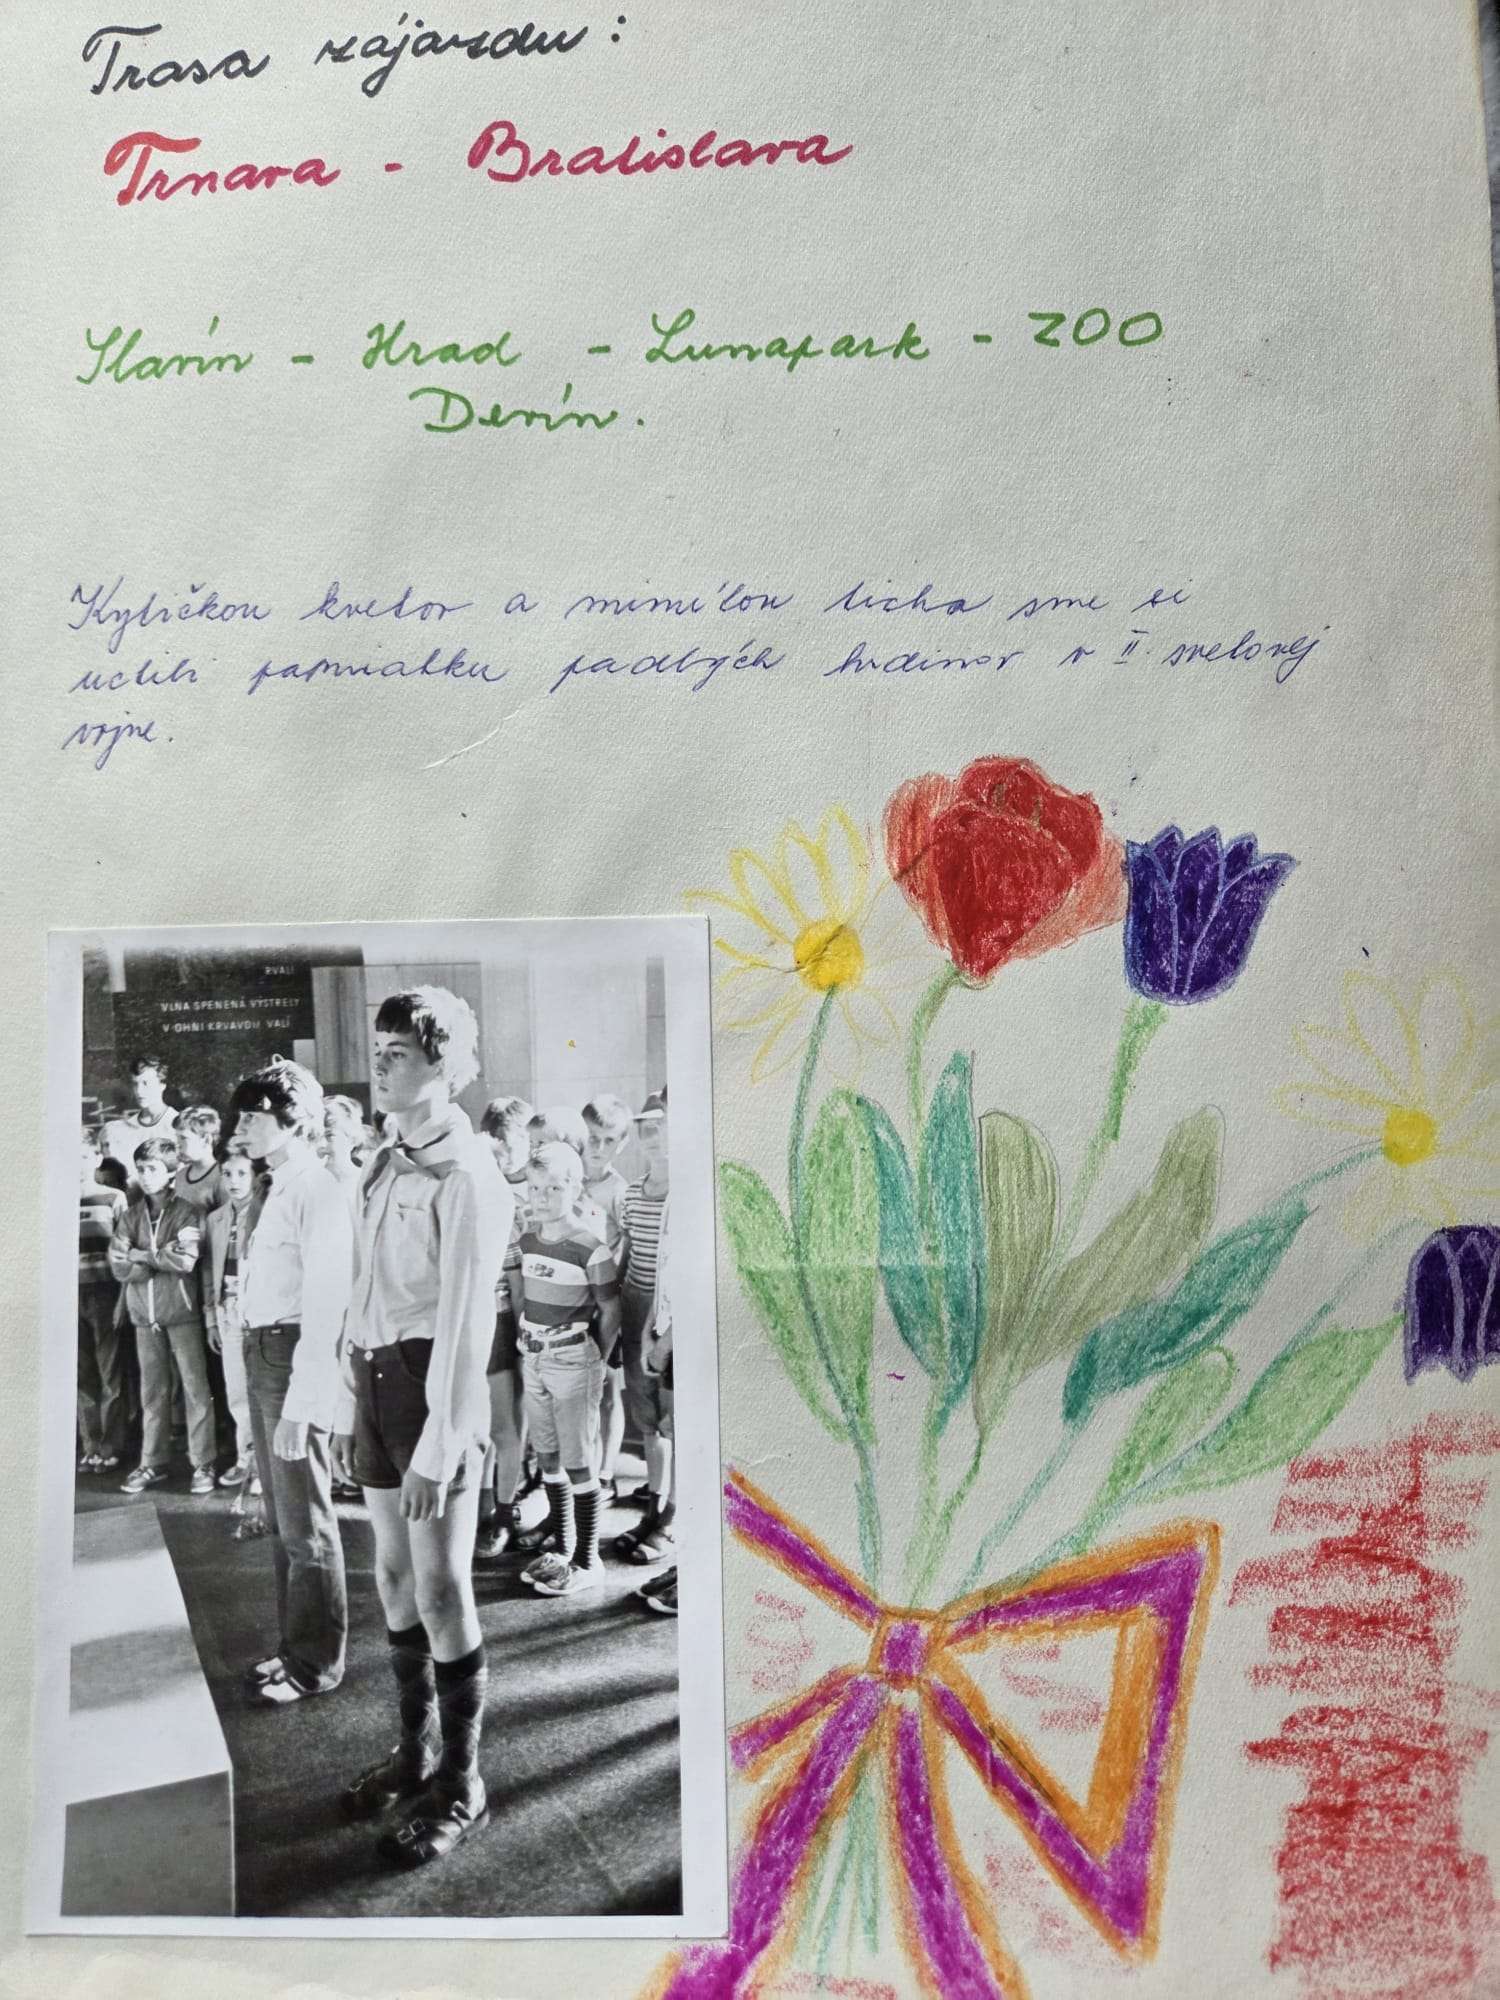 Trasa zájazdu:
Trnava - Bratislava
Slavín - Hrad - Lunapark - ZOO
Devín.
Kytičkou kvetov a minútou ticha sme si
uctili pamiatku padlých hrdinov v II. svetovej
vojne.
RVALI
VLNA SPENENÁ VÝSTRELY
V OHNI KRVAVOM VALÍ